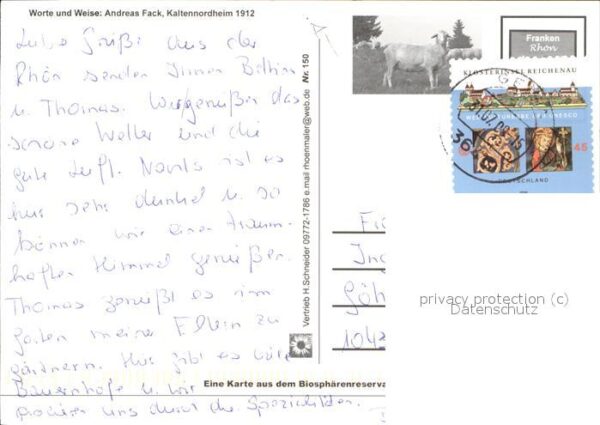 Worte und Weise: Andreas Fack, Kaltennordheim 1912
Liebe Grüße aus der
Rhön senden Ihnen Bettina
u. Thomas. Wir genießen das
schöne Wetter und die
gute Luft. Nachts ist es
hier sehr dunkel u. so
können wir einen traum-
haften Himmel genießen.
Thomas genießt es im
Garten meiner Eltern zu
gärtnern. Hier gibt es viele
Bauernhöfe u. wir
probieren uns durch die Spezialitäten.
Vertrieb H.Schneider 09772-1786 e.mail rhoenmaler@web.de Nr. 150
Franken
Rhön
KLOSTERINSEL REICHENAU
WELTKULTURERBE DER UNESCO
45
DEUTSCHLAND
36
Göh
1043
privacy protection (c)
Datenschutz
Eine Karte aus dem Biosphärenreserva